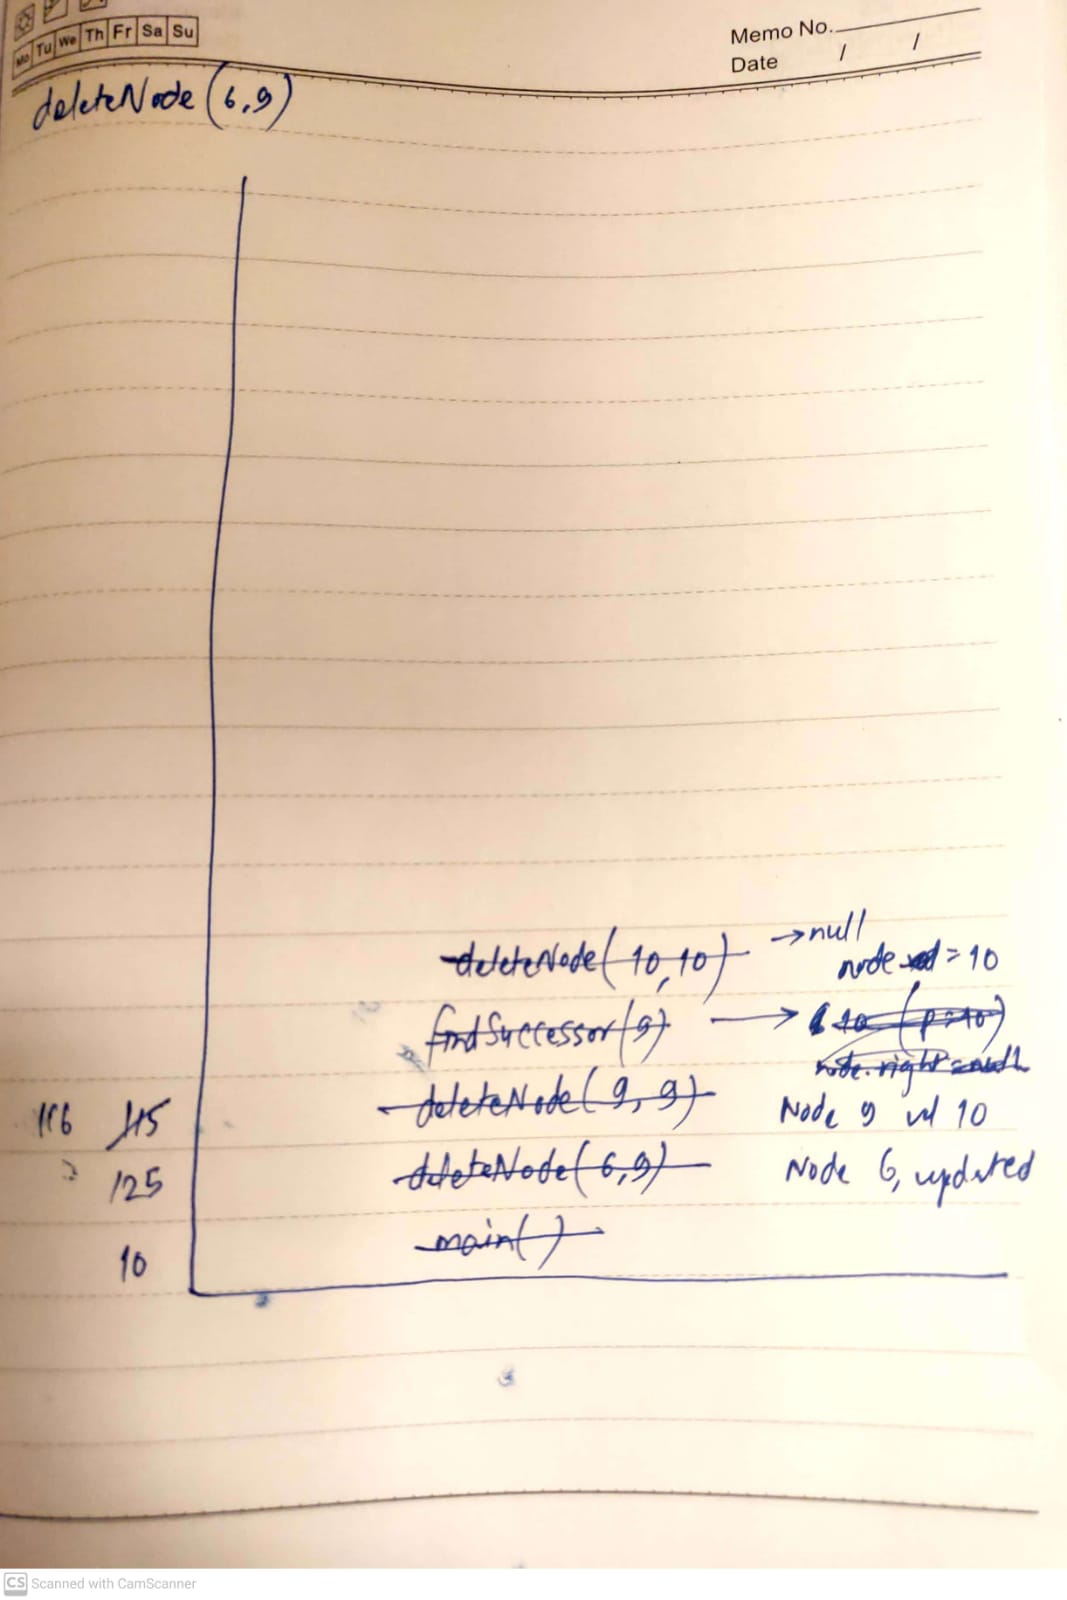 Mo Tu We Th Fr Sa Su
Memo No.
Date / /
deleteNode(6,9)
deleteNode(10,10) →null
node = 10
findSuccessor(9) → 10 (p=10)
node.right=null
116 115 deleteNode(9,9) Node 9 val 10
125 deleteNode(6,9) Node 6, updated
10 main()
CS Scanned with CamScanner